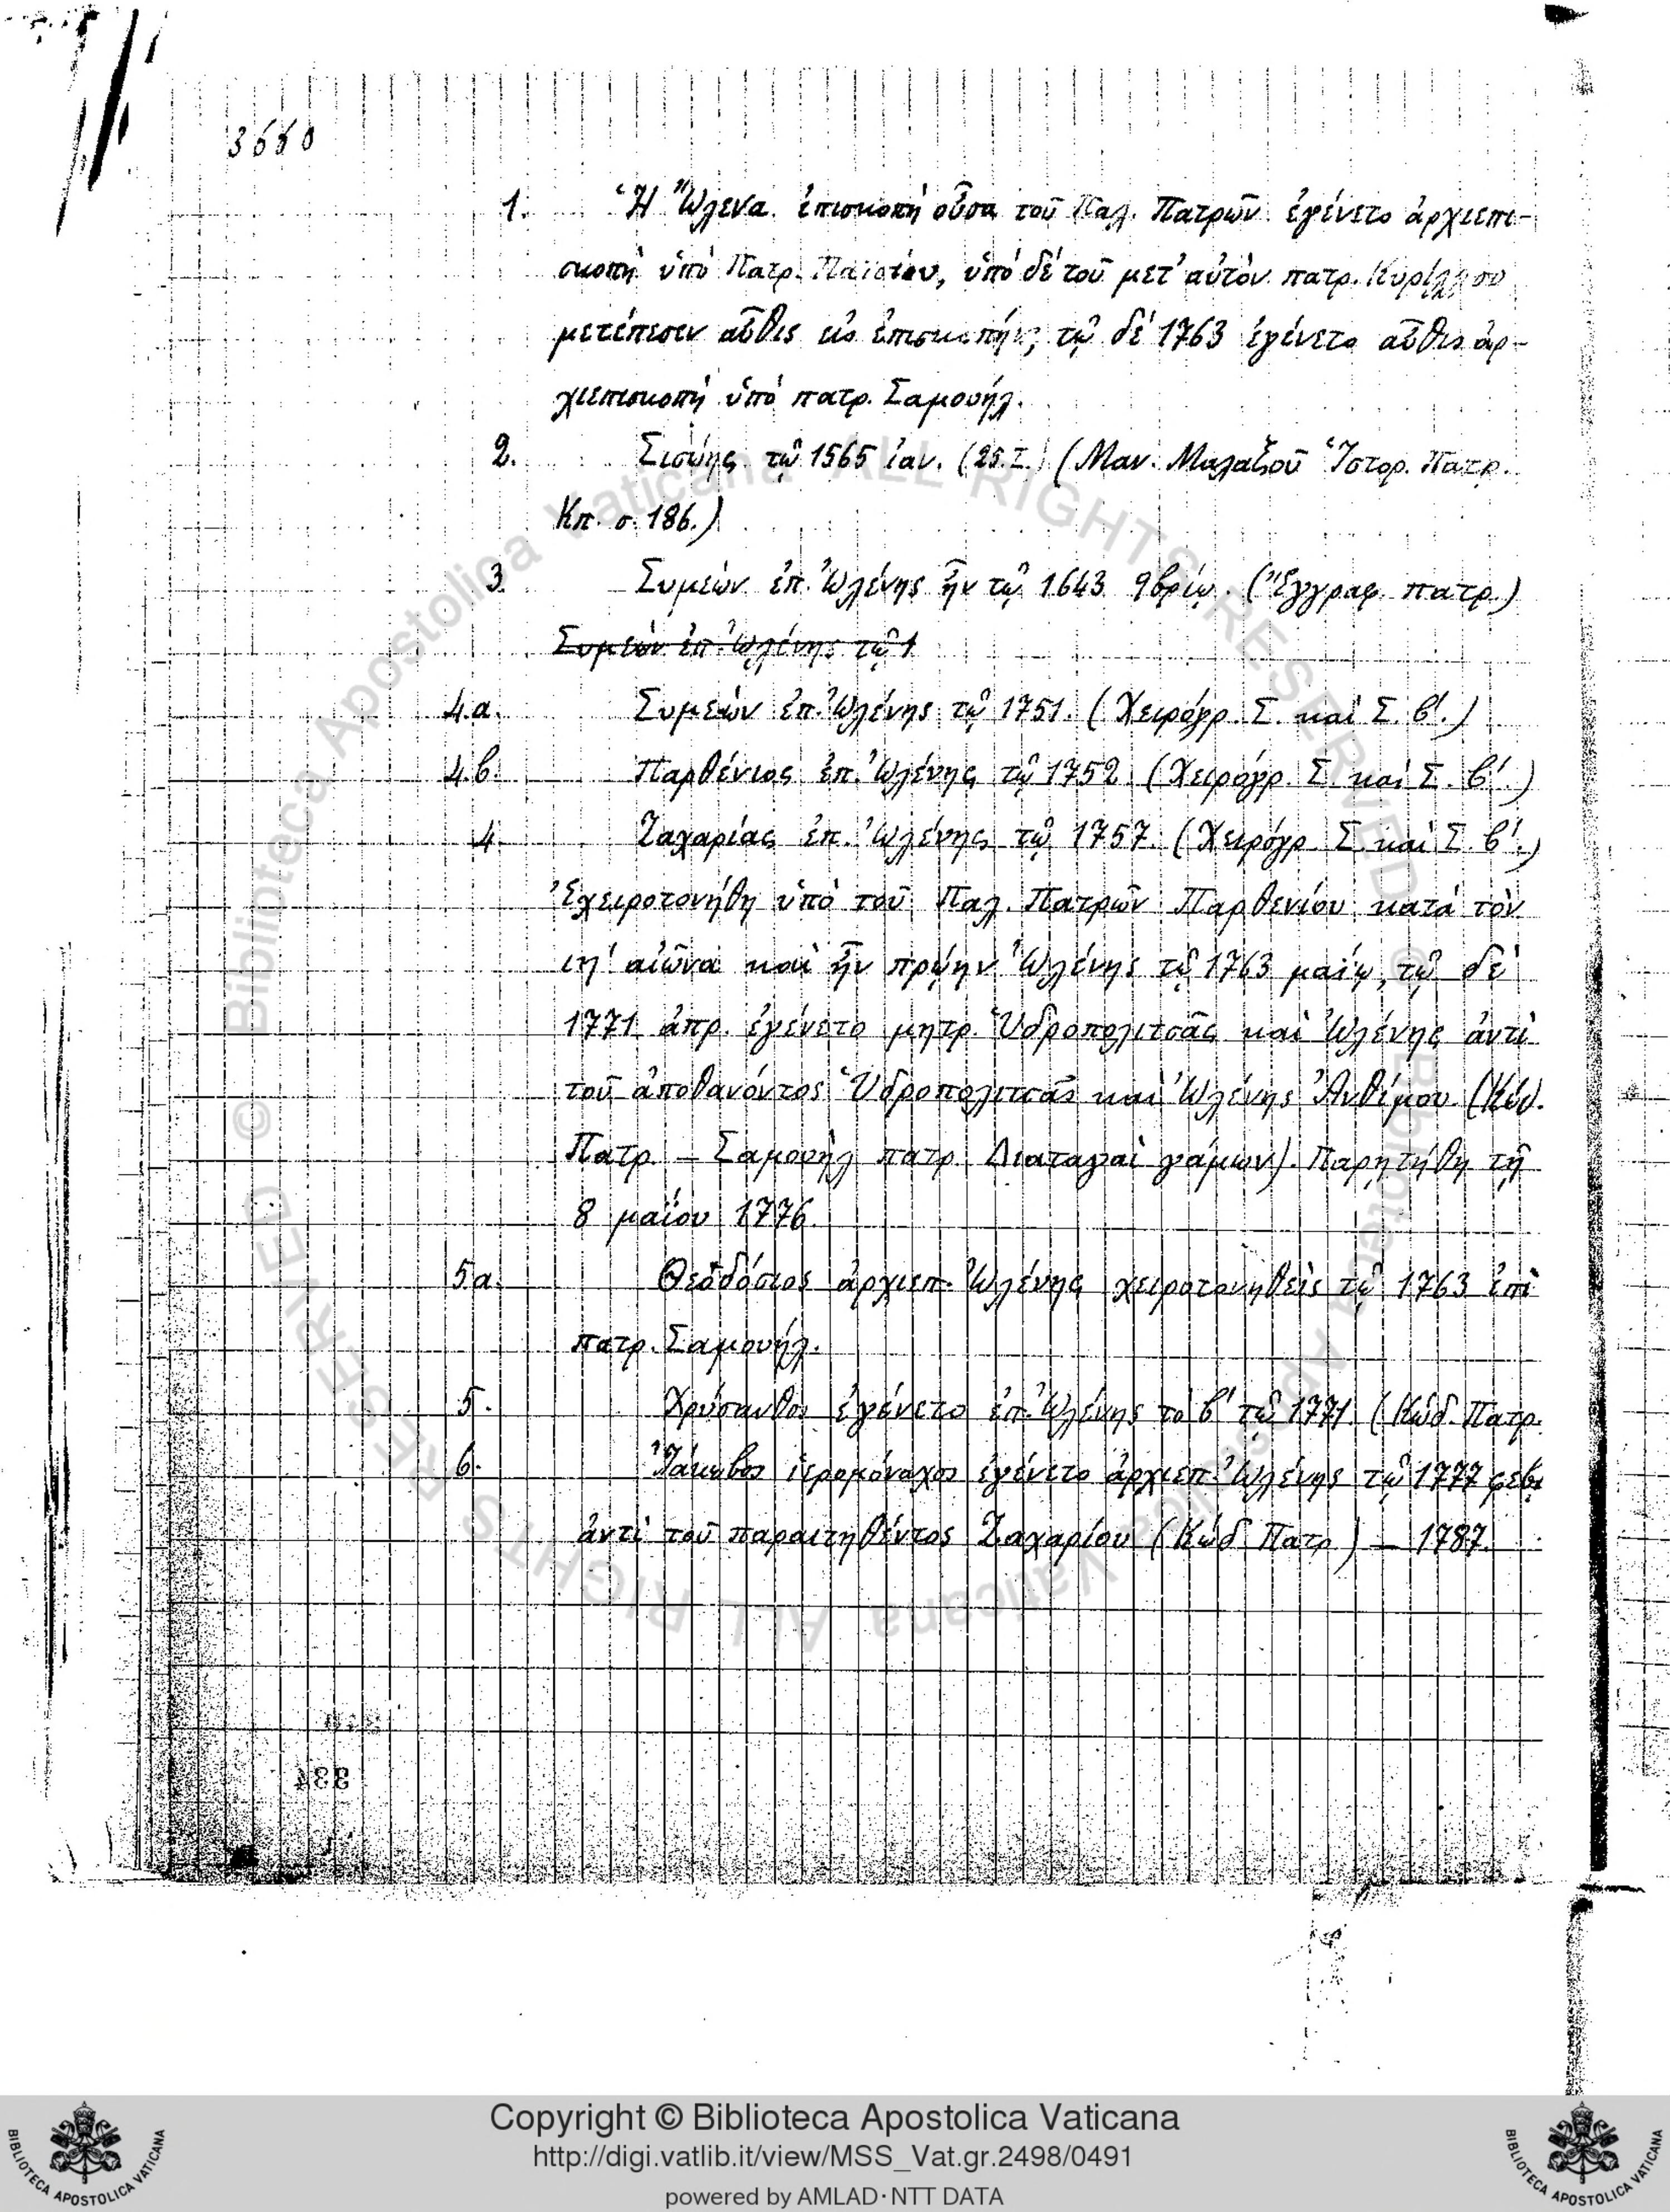 3660
1. Ἡ Ὤλενα ἐπισκοπὴ οὖσα τοῦ Παλ. Πατρῶν ἐγένετο ἀρχιεπι-
σκοπὴ ὑπὸ Πατρ. Παϊσίου, ὑπὸ δὲ τοῦ μετ' αὐτὸν πατρ. Κυρίλλου
μετέπεσεν αὖθις εἰς ἐπισκοπήν, τῷ δὲ 1763 ἐγένετο αὖθις ἀρ-
χιεπισκοπὴ ὑπὸ πατρ. Σαμουήλ.
2. Σισώης τῷ 1565 ἰαν. (25.Ι.) (Μαν. Μαλαξοῦ Ἱστορ. Πατρ.
Κπ. σ. 186.)
3. Συμεὼν ἐπ. Ὠλένης ἦν τῷ 1643 9βρίῳ. (Ἔγγραφ. πατρ.)
Συμεὼν ἐπ. Ὠλένης τῷ 1
4.α. Συμεὼν ἐπ. Ὠλένης τῷ 1751. (Χειρόγρ. Σ. καὶ Σ. β'.)
4.β. Παρθένιος ἐπ. Ὠλένης τῷ 1752 (Χειρόγρ. Σ. καὶ Σ. β'.)
4. Ζαχαρίας ἐπ. Ὠλένης τῷ 1757. (Χειρόγρ. Σ. καὶ Σ. β'.)
Ἐχειροτονήθη ὑπὸ τοῦ Παλ. Πατρῶν Παρθενίου κατὰ τὸν
ιη' αἰῶνα καὶ ἦν πρῴην Ὠλένης τῷ 1763 μαίῳ, τῷ δὲ
1771 ἀπρ. ἐγένετο μητρ. Ὑδροπολιτσᾶς καὶ Ὠλένης ἀντὶ
τοῦ ἀποθανόντος Ὑδροπολιτσᾶς καὶ Ὠλένης Ἀνθίμου. (Κώδ.
Πατρ. – Σαμουὴλ πατρ. Διαταγαὶ γάμων). Παρῃτήθη τῇ
8 μαΐου 1776.
5α. Θεοδόσιος ἀρχιεπ. Ὠλένης χειροτονηθεὶς τῷ 1763 ἐπὶ
πατρ. Σαμουήλ.
5. Χρύσανθος ἐγένετο ἐπ. Ὠλένης τὸ β' τῷ 1771. (Κώδ. Πατρ.
6. Ἰάκωβος ἱερομόναχος ἐγένετο ἀρχιεπ. Ὠλένης τῷ 1777 φεβρ
ἀντὶ τοῦ παραιτηθέντος Ζαχαρίου (Κώδ. Πατρ.) – 1787.
© Biblioteca Apostolica Vaticana ALL RIGHTS RESERVED
Copyright © Biblioteca Apostolica Vaticana
http://digi.vatlib.it/view/MSS_Vat.gr.2498/0491
powered by AMLAD·NTT DATA
BIBLIOTECA APOSTOLICA VATICANA
BIBLIOTECA APOSTOLICA VATICANA